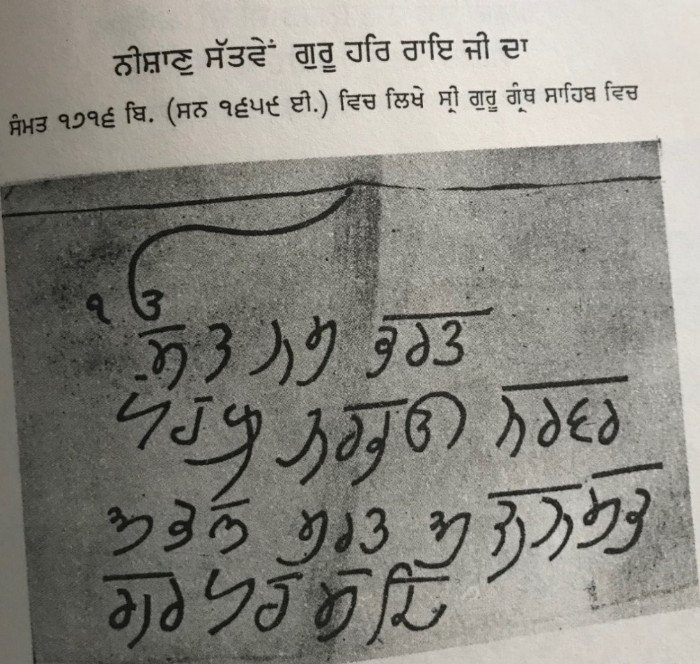 ਨੀਸ਼ਾਣੁ ਸੱਤਵੇਂ ਗੁਰੂ ਹਰਿ ਰਾਇ ਜੀ ਦਾ
ਸੰਮਤ ੧੭੧੬ ਬਿ. (ਸਨ ੧੬੫੯ ਈ.) ਵਿਚ ਲਿਖੇ ਸ੍ਰੀ ਗੁਰੂ ਗ੍ਰੰਥ ਸਾਹਿਬ ਵਿਚ
ੴ
ਸਤ ਨਮ ਕਰਤ
ਨਰਭਉ ਨਰਵਰ
ਅਕਲ ਮਰਤ
ਗਰ